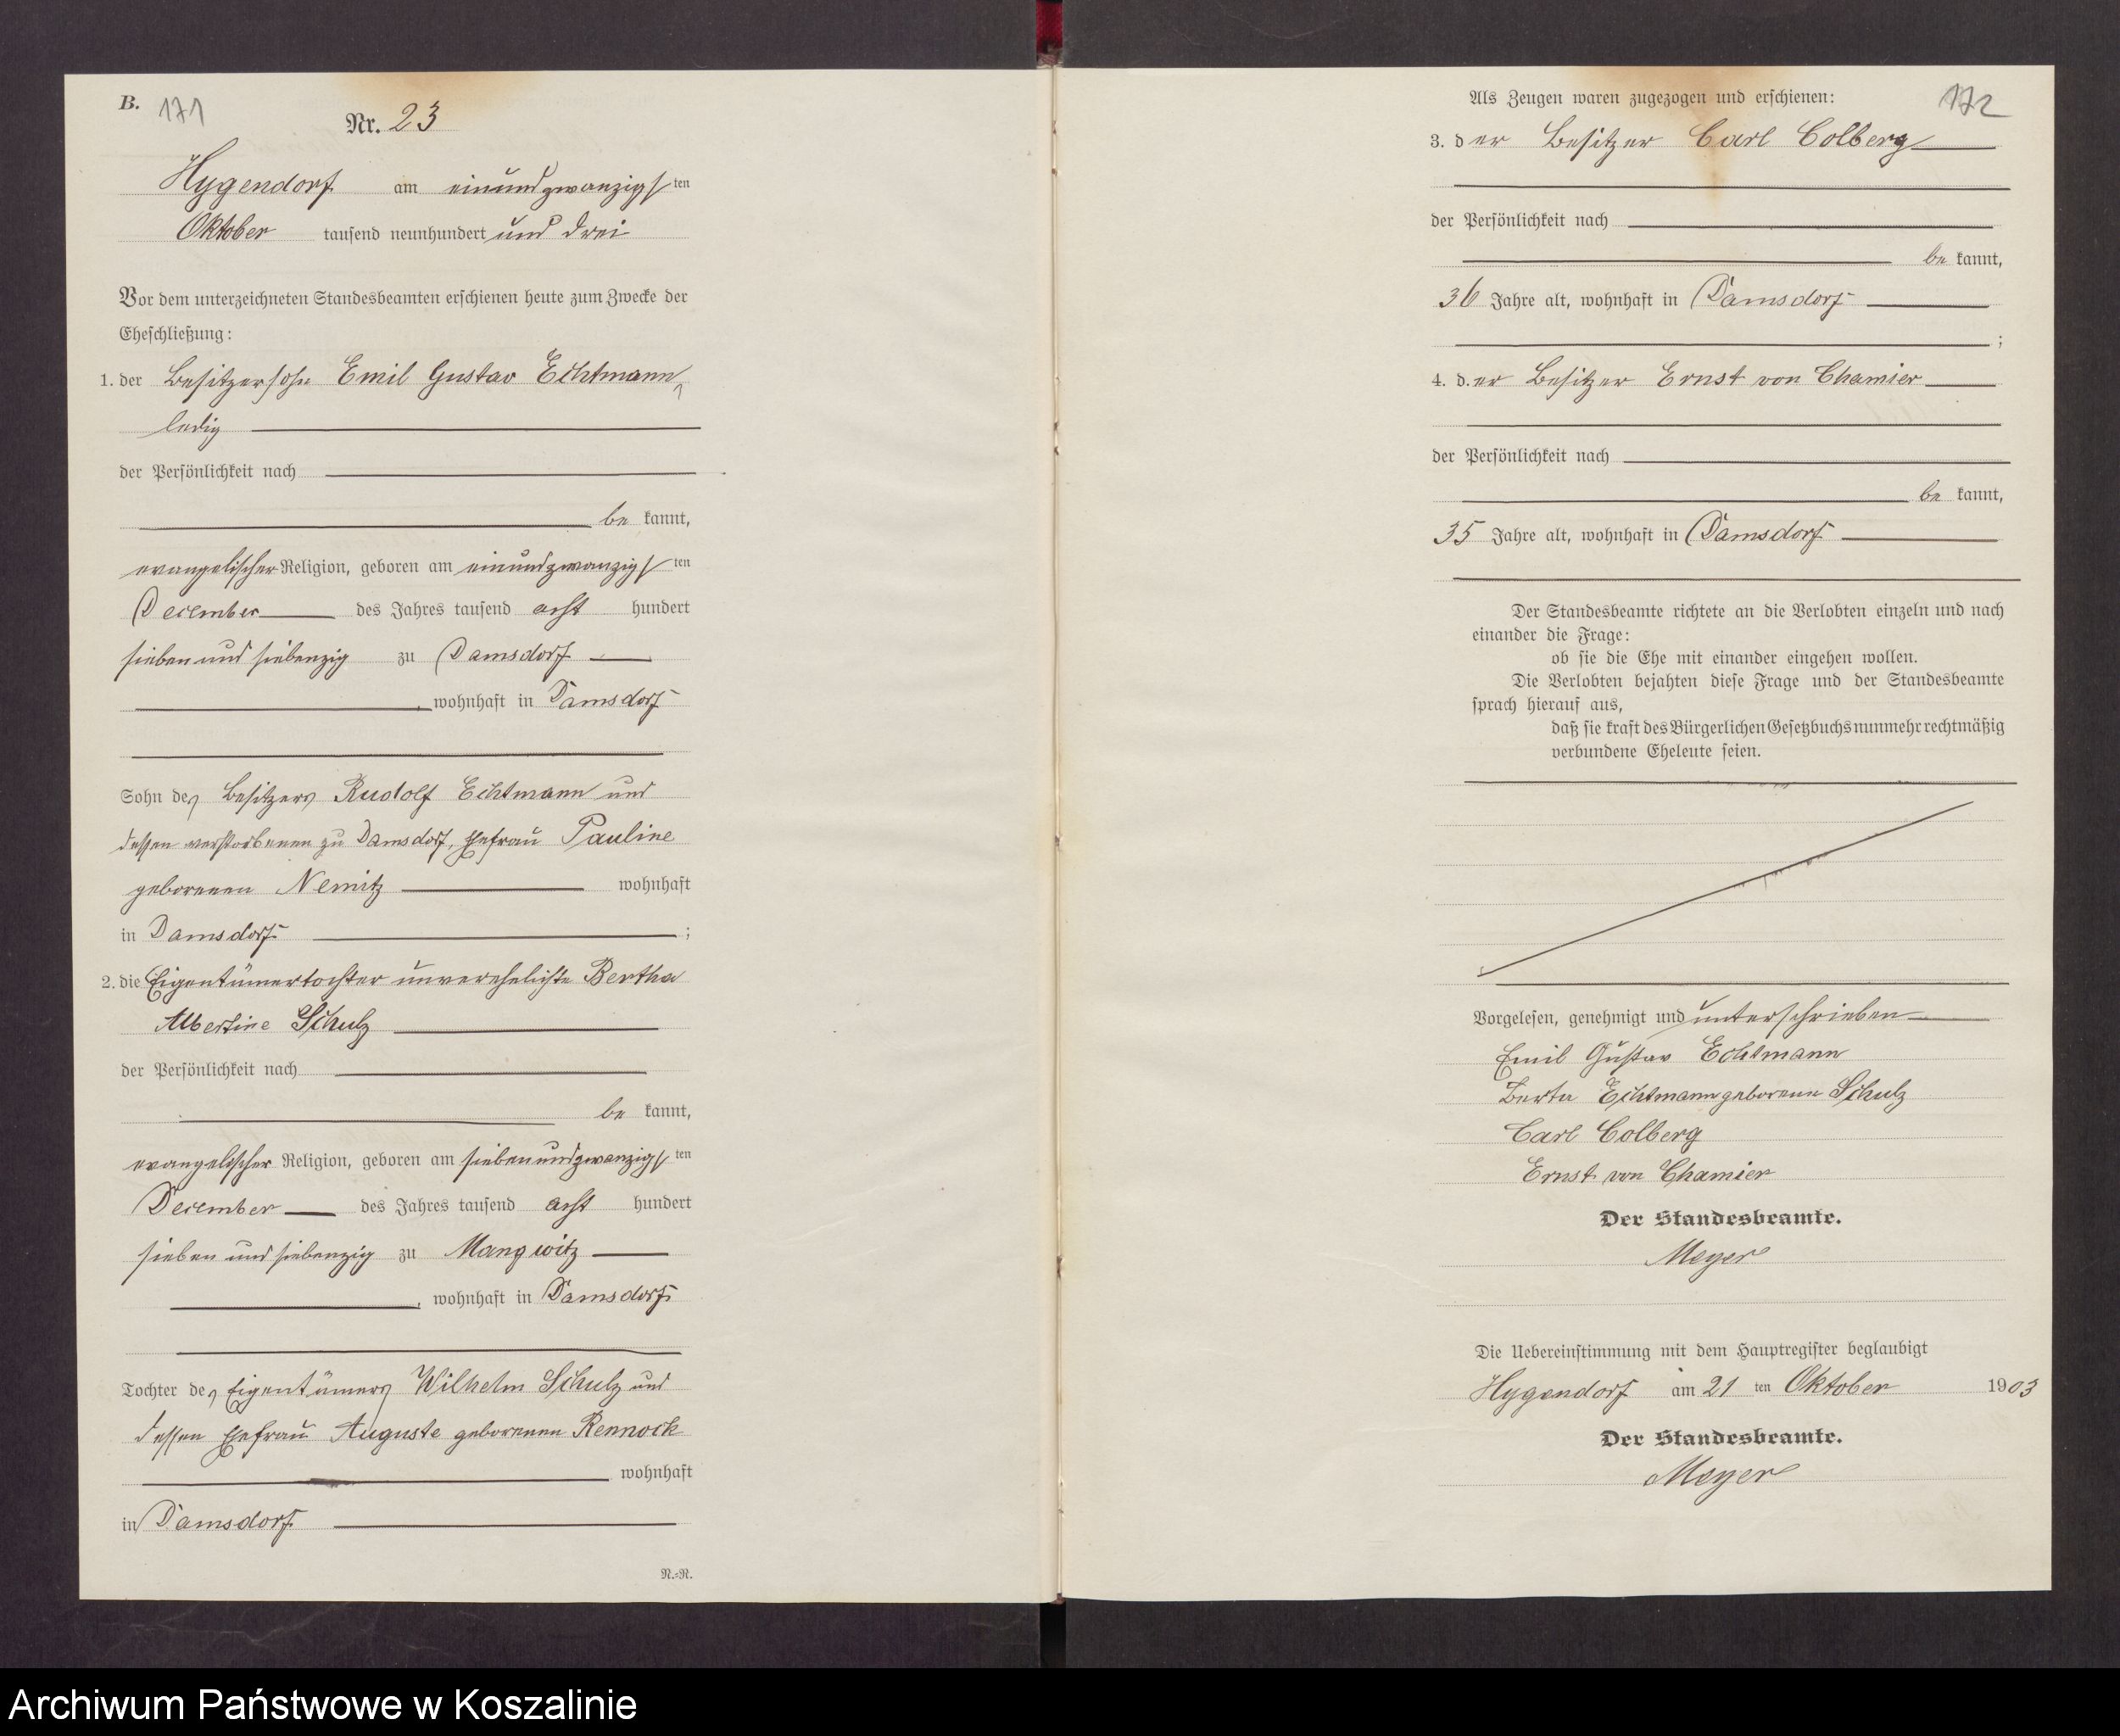 B. 171
Nr. 23
Hygendorf am einundzwanzigsten
Oktober tausend neunhundert und drei
Vor dem unterzeichneten Standesbeamten erschienen heute zum Zwecke der
Eheschließung:
1. der Besitzersohn Emil Gustav Echtmann,
ledig
der Persönlichkeit nach
be kannt,
evangelischer Religion, geboren am einundzwanzigsten
December des Jahres tausend acht hundert
sieben und siebenzig zu Damsdorf
, wohnhaft in Damsdorf
Sohn des Besitzers Rudolf Echtmann und
dessen verstorbenen zu Damsdorf, Ehefrau Pauline
geborenen Nemitz wohnhaft
in Damsdorf ;
2. die Eigentümertochter unverehelichte Bertha
Albertine Schulz
der Persönlichkeit nach
be kannt,
evangelischer Religion, geboren am siebenundzwanzigsten
December des Jahres tausend acht hundert
sieben und siebenzig zu Mangwitz
, wohnhaft in Damsdorf
Tochter des Eigentümers Wilhelm Schulz und
dessen Ehefrau Auguste geborenen Rennock
wohnhaft
in Damsdorf
N.=N.
172
Als Zeugen waren zugezogen und erschienen:
3. der Besitzer Carl Colberg
der Persönlichkeit nach
be kannt,
36 Jahre alt, wohnhaft in Damsdorf
;
4. d.er Besitzer Ernst von Chamier
der Persönlichkeit nach
be kannt,
35 Jahre alt, wohnhaft in Damsdorf
Der Standesbeamte richtete an die Verlobten einzeln und nach
einander die Frage:
ob sie die Ehe mit einander eingehen wollen.
Die Verlobten bejahten diese Frage und der Standesbeamte
sprach hierauf aus,
daß sie kraft des Bürgerlichen Gesetzbuchs nunmehr rechtmäßig
verbundene Eheleute seien.
Vorgelesen, genehmigt und unterschrieben
Emil Gustav Echtmann
Berta Echtmann geborene Schulz
Carl Colberg
Ernst von Chamier
Der Standesbeamte.
Meyer
Die Uebereinstimmung mit dem Hauptregister beglaubigt
Hygendorf am 21 ten Oktober 1903
Der Standesbeamte.
Meyer
Archiwum Państwowe w Koszalinie